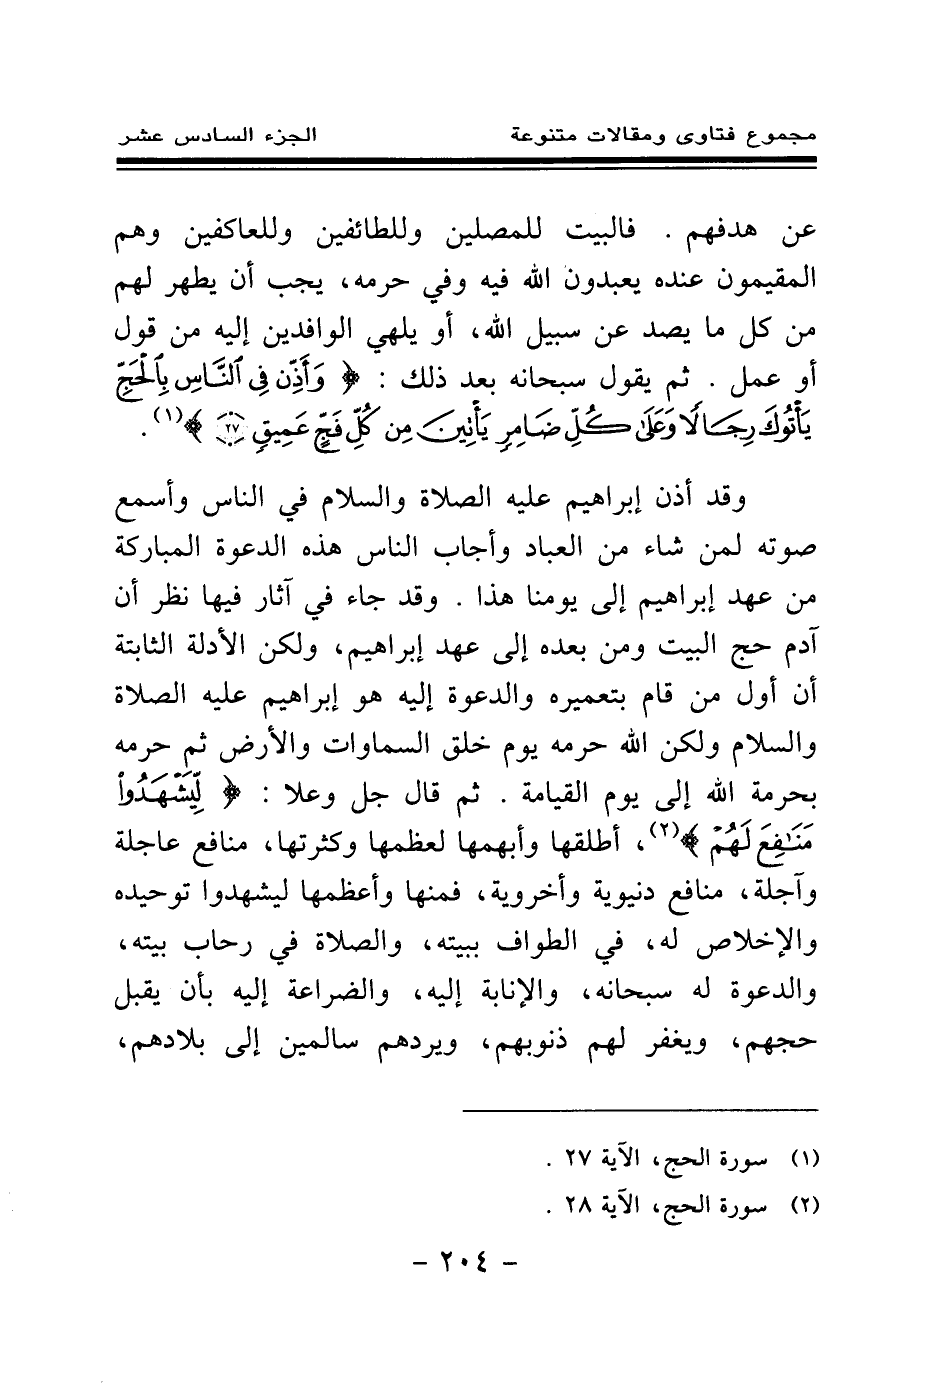 مجموع فتاوى ومقالات متنوعة الجزء السادس عشر
عن هدفهم . فالبيت للمصلين وللطائفين وللعاكفين وهم
المقيمون عنده يعبدون الله فيه وفي حرمه، يجب أن يطهر لهم
من كل ما يصد عن سبيل الله، أو يلهي الوافدين إليه من قول
أو عمل . ثم يقول سبحانه بعد ذلك : ﴿ وَأَذِّن فِي ٱلنَّاسِ بِٱلْحَجِّ
يَأْتُوكَ رِجَالًا وَعَلَىٰ كُلِّ ضَامِرٍ يَأْتِينَ مِن كُلِّ فَجٍّ عَمِيقٍ ۝٢٧ ﴾(١) .
وقد أذن إبراهيم عليه الصلاة والسلام في الناس وأسمع
صوته لمن شاء من العباد وأجاب الناس هذه الدعوة المباركة
من عهد إبراهيم إلى يومنا هذا . وقد جاء في آثار فيها نظر أن
آدم حج البيت ومن بعده إلى عهد إبراهيم، ولكن الأدلة الثابتة
أن أول من قام بتعميره والدعوة إليه هو إبراهيم عليه الصلاة
والسلام ولكن الله حرمه يوم خلق السماوات والأرض ثم حرمه
بحرمة الله إلى يوم القيامة . ثم قال جل وعلا : ﴿ لِّيَشْهَدُوا۟
مَنَٰفِعَ لَهُمْ ﴾(٢)، أطلقها وأبهمها لعظمها وكثرتها، منافع عاجلة
وآجلة، منافع دنيوية وأخروية، فمنها وأعظمها ليشهدوا توحيده
والإخلاص له، في الطواف ببيته، والصلاة في رحاب بيته،
والدعوة له سبحانه، والإنابة إليه، والضراعة إليه بأن يقبل
حجهم، ويغفر لهم ذنوبهم، ويردهم سالمين إلى بلادهم،
(١) سورة الحج، الآية ٢٧ .
(٢) سورة الحج، الآية ٢٨ .
- ٢٠٤ -